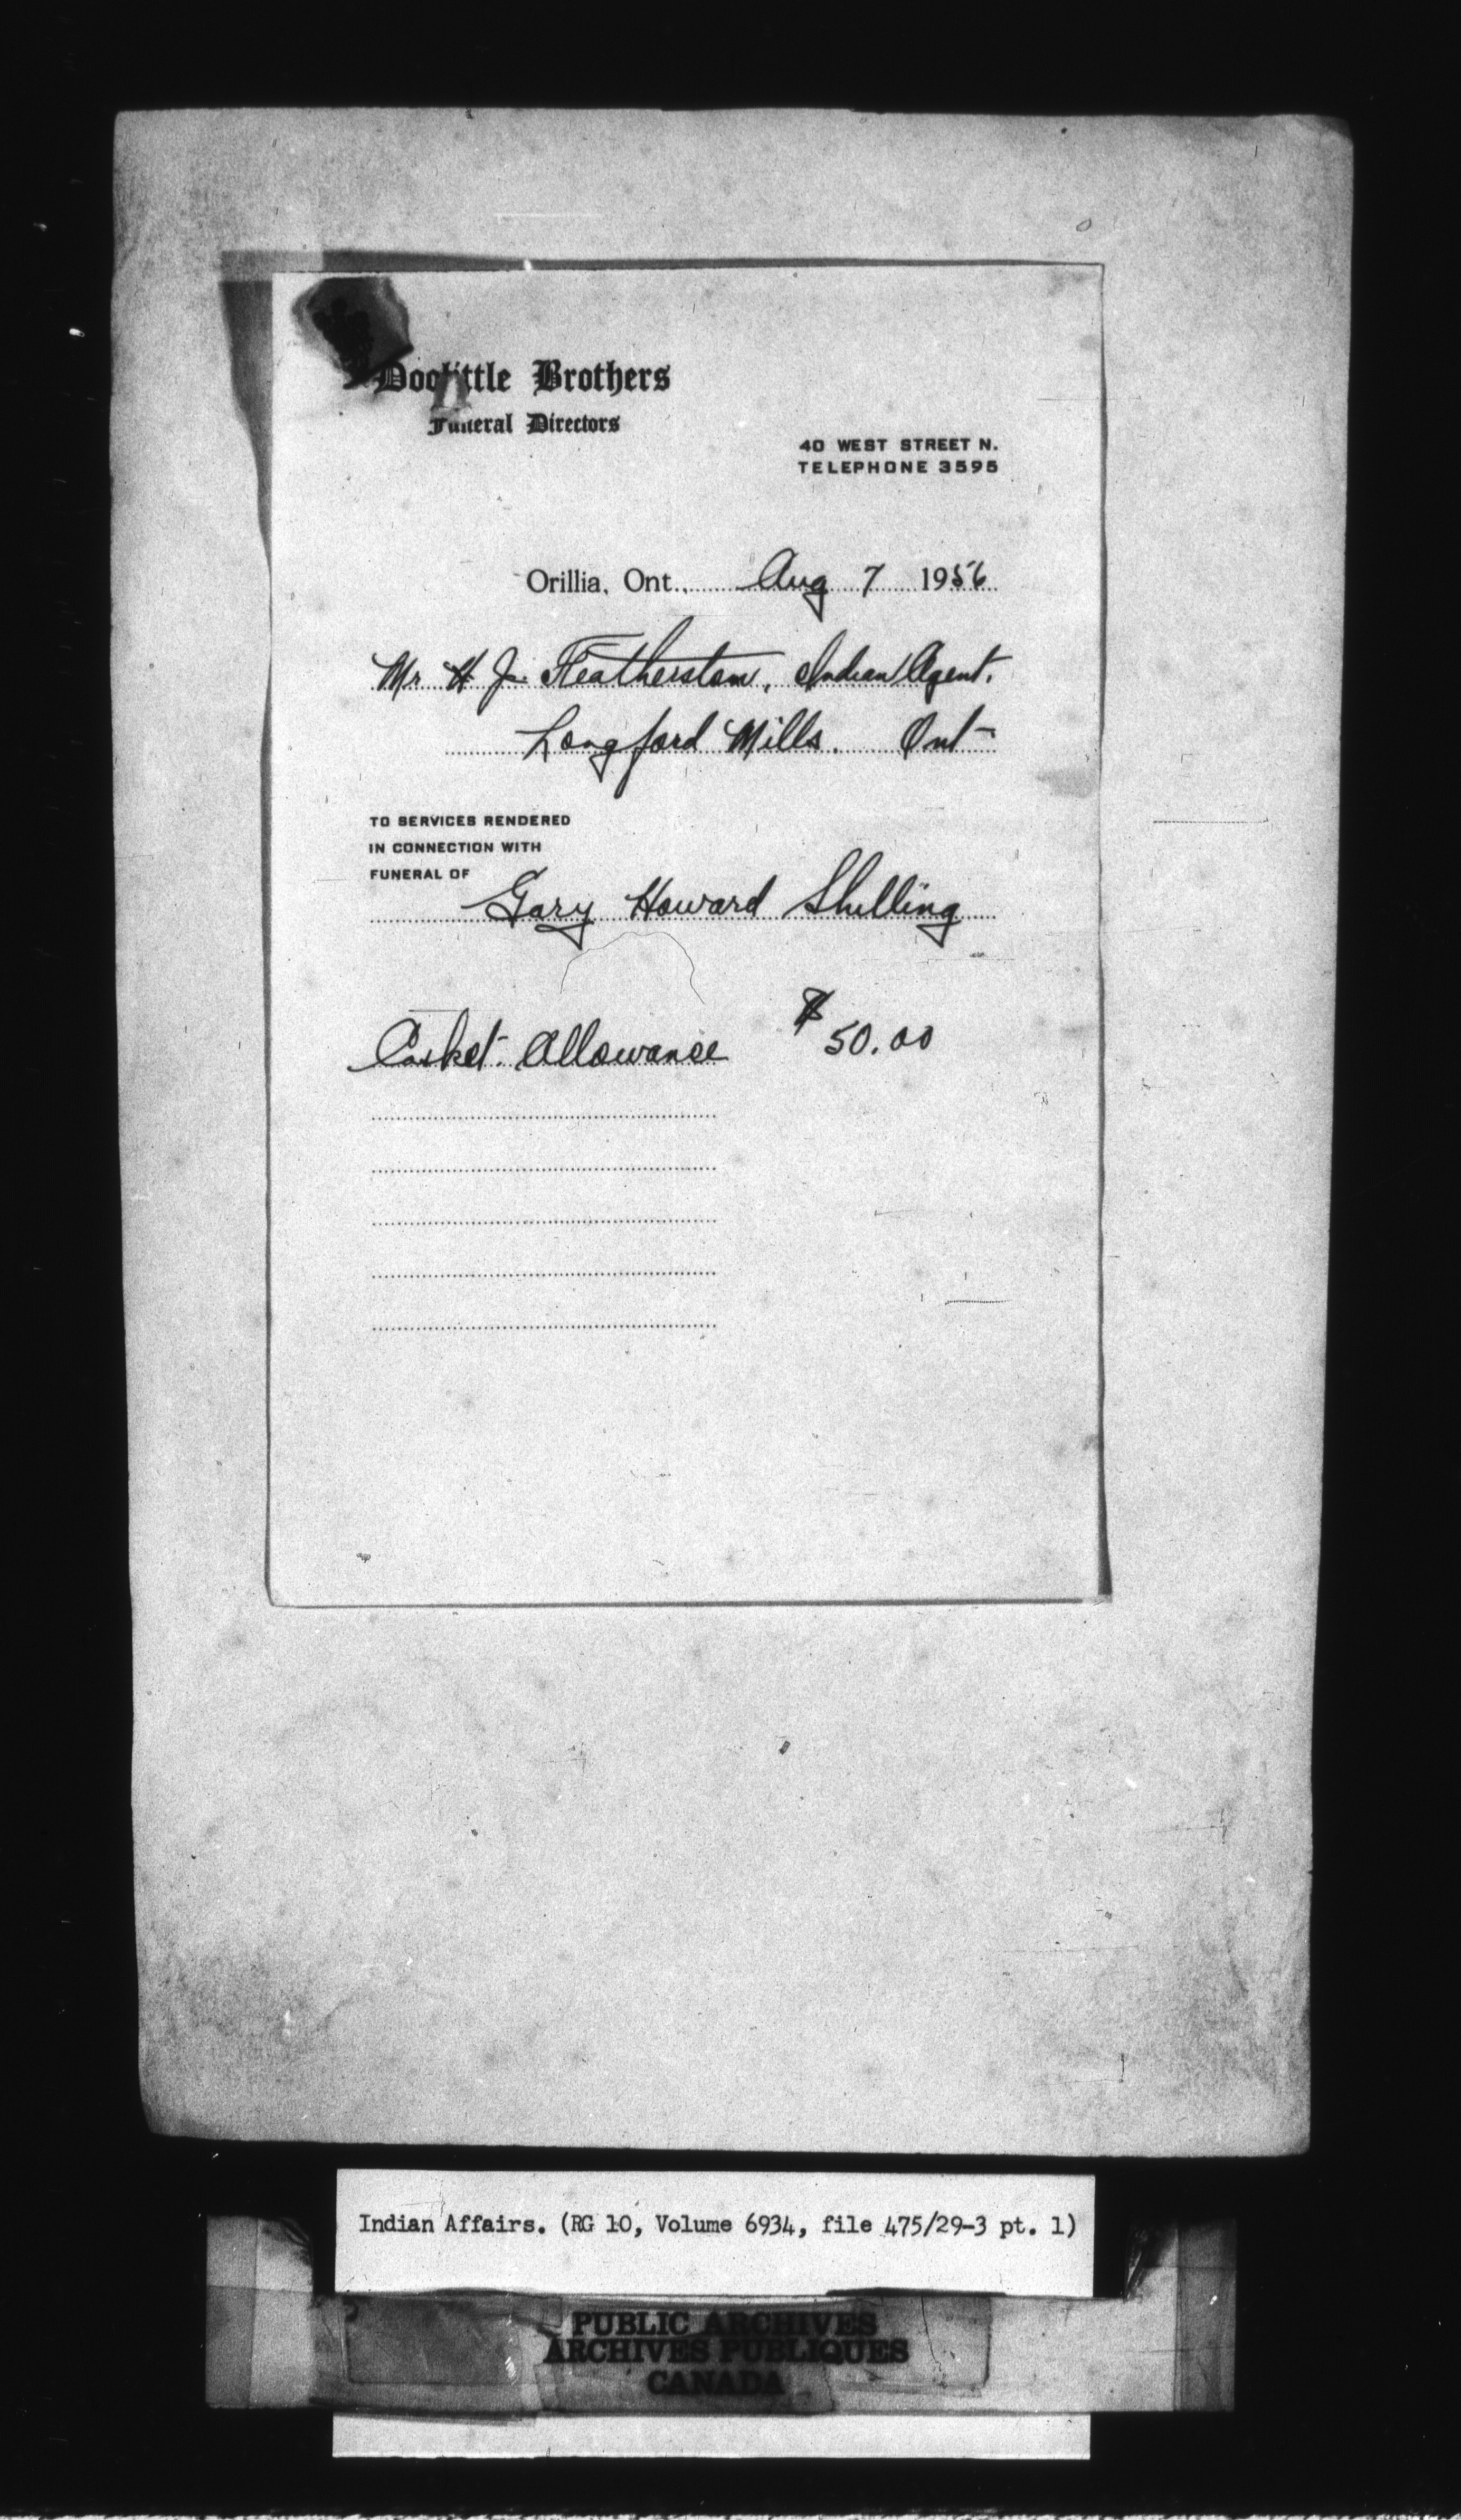 Doolittle Brothers
Funeral Directors
40 WEST STREET N.
TELEPHONE 3595
Orillia, Ont., Aug 7 1956
Mr H. J. Featherston, Indian Agent.
Longford Mills. Ont
TO SERVICES RENDERED
IN CONNECTION WITH
FUNERAL OF
Gary Howard Shilling
Casket Allowance $50.00
Indian Affairs. (RG 10, Volume 6934, file 475/29-3 pt. 1)
PUBLIC ARCHIVES
ARCHIVES PUBLIQUES
CANADA